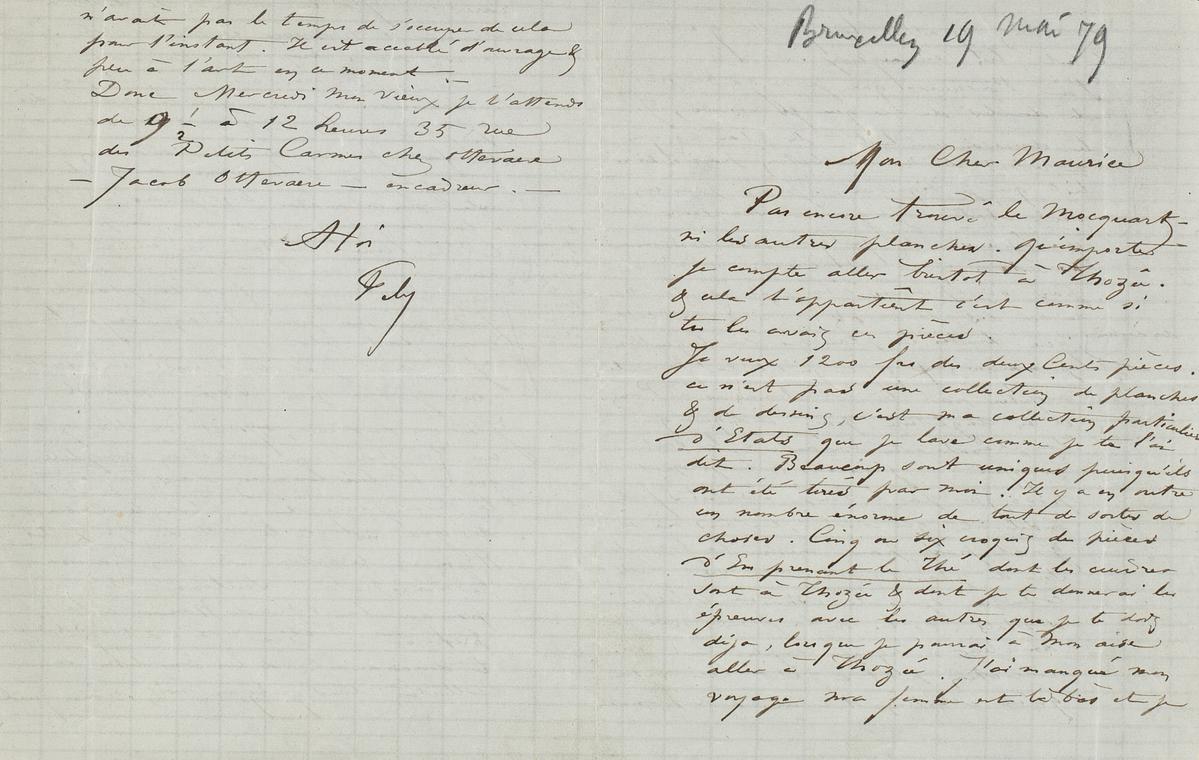 Bruxelles 19 mai 79
Mon Cher Maurice
Pas encore trouvé le Mocquart
ni les autres planches. Qu'importe
je compte aller bientot à Thozée.
& cela t'appartient c'est comme si
tu les avais ces pièces.
Je veux 1200 frs des deux Cents pièces.
ce n'est pas une collection de planches
& de dessins, c'est ma collection particulière
d'Etats que je lave comme je te l'ai
dit. Beaucoup sont uniques puisqu'ils
ont été tirés par moi. Il y a en outre
un nombre énorme de tout de sortes de
choses. Cinq ou six croquis de pièces
d'En prenant le Thé dont les cuivres
sont à Thozée & dont je te donnerai les
épreuves avec les autres que je te dois
déja, lorsque je pourrai à mon aise
aller à Thozée. J'ai manqué mon
voyage ma femme est là bas et je
n'avait pas le temps de s'occuper de cela
pour l'instant. Il est accablé d'ouvrage &
peu à l'art en ce moment.
Donc Mercredi mon vieux je t'attends
de 9 1/2 à 12 heures 35 rue
des Petits Carmes chez Ottevaere
— Jacob Ottevaere — encadreur. —
A toi
Fély